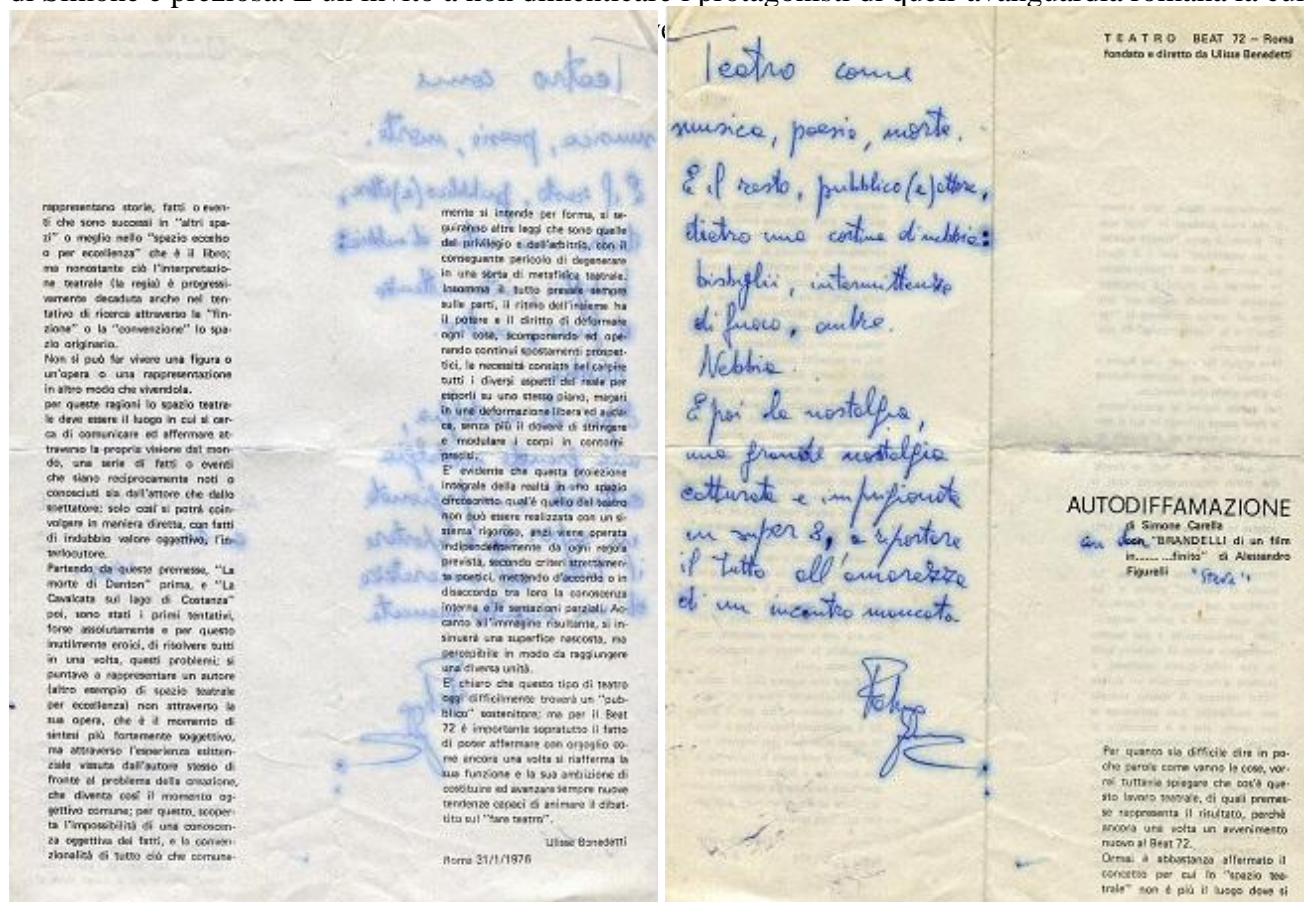 di Simone è preziosa. È un invito a non dimenticare i protagonisti di quell'avanguardia romana la cui
rappresentano storie, fatti o even-
ti che sono successi in "altri spa-
zi" o meglio nello "spazio eccelso
o per eccellenza" che è il libro;
ma nonostante ciò l'interpretazio-
ne teatrale (la regia) è progressi-
vamente decaduta anche nel ten-
tativo di ricerca attraverso la "fin-
zione" o la "convenzione" lo spa-
zio originario.
Non si può far vivere una figura o
un'opera o una rappresentazione
in altro modo che vivendola.
per queste ragioni lo spazio teatra-
le deve essere il luogo in cui si cer-
ca di comunicare ed affermare at-
traverso la propria visione del mon-
do, una serie di fatti o eventi
che siano reciprocamente noti o
conosciuti sia dall'attore che dallo
spettatore; solo così si potrà coin-
volgere in maniera diretta, con fatti
di indubbio valore oggettivo, l'in-
terlocutore.
Partendo da queste premesse, "La
morte di Danton" prima, e "La
Cavalcata sul lago di Costanza"
poi, sono stati i primi tentativi,
forse assolutamente e per questo
inutilmente eroici, di risolvere tutti
in una volta, questi problemi; si
puntava a rappresentare un autore
(altro esempio di spazio teatrale
per eccellenza) non attraverso la
sua opera, che è il momento di
sintesi più fortemente soggettivo,
ma attraverso l'esperienza esisten-
ziale vissuta dall'autore stesso di
fronte al problema della creazione,
che diventa così il momento og-
gettivo comune; per questo, scoper-
ta l'impossibilità di una conoscen-
za oggettiva dei fatti, e la conven-
zionalità di tutto ciò che comune-
mente si intende per forma, si se-
guiranno altre leggi che sono quelle
del privilegio e dell'arbitrio, con il
conseguente pericolo di degenerare
in una sorta di metafisica teatrale.
Insomma il tutto prevale sempre
sulle parti, il ritmo dell'insieme ha
il potere e il diritto di deformare
ogni cosa, scomponendo ed ope-
rando continui spostamenti prospet-
tici, la necessità consiste nel colpire
tutti i diversi aspetti del reale per
esporli su uno stesso piano, magari
in una deformazione libera ed auda-
ce, senza più il dovere di stringere
e modulare i corpi in contorni
precisi.
E' evidente che questa proiezione
integrale della realtà in uno spazio
circoscritto qual'è quello del teatro
non può essere realizzata con un si-
stema rigoroso, anzi viene operata
indipendentemente da ogni regola
prevista, secondo criteri strettamen-
te poetici, mettendo d'accordo o in
disaccordo tra loro la conoscenza
interna e le sensazioni parziali. Ac-
canto all'immagine risultante, si in-
sinuerà una superfice nascosta, ma
percepibile in modo da raggiungere
una diversa unità.
E' chiaro che questo tipo di teatro
oggi difficilmente troverà un "pub-
blico" sostenitore; ma per il Beat
72 è importante sopratutto il fatto
di poter affermare con orgoglio co-
me ancora una volta si riafferma la
sua funzione e la sua ambizione di
costituire ed avanzare sempre nuove
tendenze capaci di animare il dibat-
tito sul "fare teatro".
Ulisse Benedetti
Roma 31/1/1976
Teatro come
musica, poesia, morte.
E il resto, pubblico (e) attore,
dietro una cortina di nebbia:
bisbiglii, intermittenze
di fuoco, ombre.
Nebbia.
E poi la nostalgia,
una grande nostalgia
catturata e imprigionata
in super 8, a riportare
il tutto all'amarezza
di un incontro mancato.
TEATRO BEAT 72 – Roma
fondato e diretto da Ulisse Benedetti
AUTODIFFAMAZIONE
di Simone Carella
con "BRANDELLI di un film
in...... ...finito" di Alessandro
Figurelli
Per quanto sia difficile dire in po-
che parole come vanno le cose, vor-
rei tuttavia spiegare che cos'è que-
sto lavoro teatrale, di quali premes-
se rappresenta il risultato, perchè
ancora una volta un avvenimento
nuovo al Beat 72.
Ormai è abbastanza affermato il
concetto per cui lo "spazio tea-
trale" non è più il luogo dove si